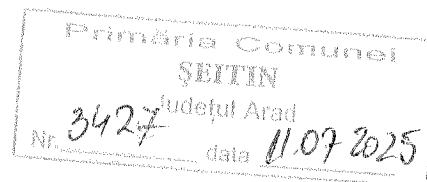 Primăria Comunei
ŞEITIN
Judeţul Arad
Nr. 3427 data 11.07 2025